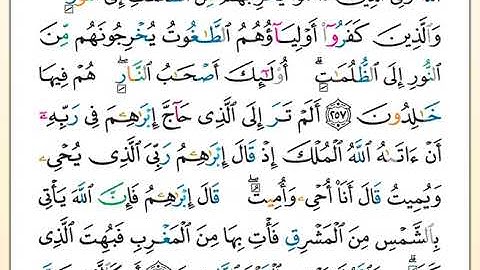 وَٱلَّذِينَ كَفَرُوٓا۟ أَوْلِيَآؤُهُمُ ٱلطَّـٰغُوتُ يُخْرِجُونَهُم مِّنَ
ٱلنُّورِ إِلَى ٱلظُّلُمَـٰتِ ۗ أُو۟لَـٰٓئِكَ أَصْحَـٰبُ ٱلنَّارِ ۖ هُمْ فِيهَا
خَـٰلِدُونَ ٢٥٧ أَلَمْ تَرَ إِلَى ٱلَّذِى حَآجَّ إِبْرَٰهِـۧمَ فِى رَبِّهِۦٓ
أَنْ ءَاتَىٰهُ ٱللَّهُ ٱلْمُلْكَ إِذْ قَالَ إِبْرَٰهِـۧمُ رَبِّىَ ٱلَّذِى يُحْىِۦ
وَيُمِيتُ قَالَ أَنَا۠ أُحْىِۦ وَأُمِيتُ ۖ قَالَ إِبْرَٰهِـۧمُ فَإِنَّ ٱللَّهَ يَأْتِى
بِٱلشَّمْسِ مِنَ ٱلْمَشْرِقِ فَأْتِ بِهَا مِنَ ٱلْمَغْرِبِ فَبُهِتَ ٱلَّذِى